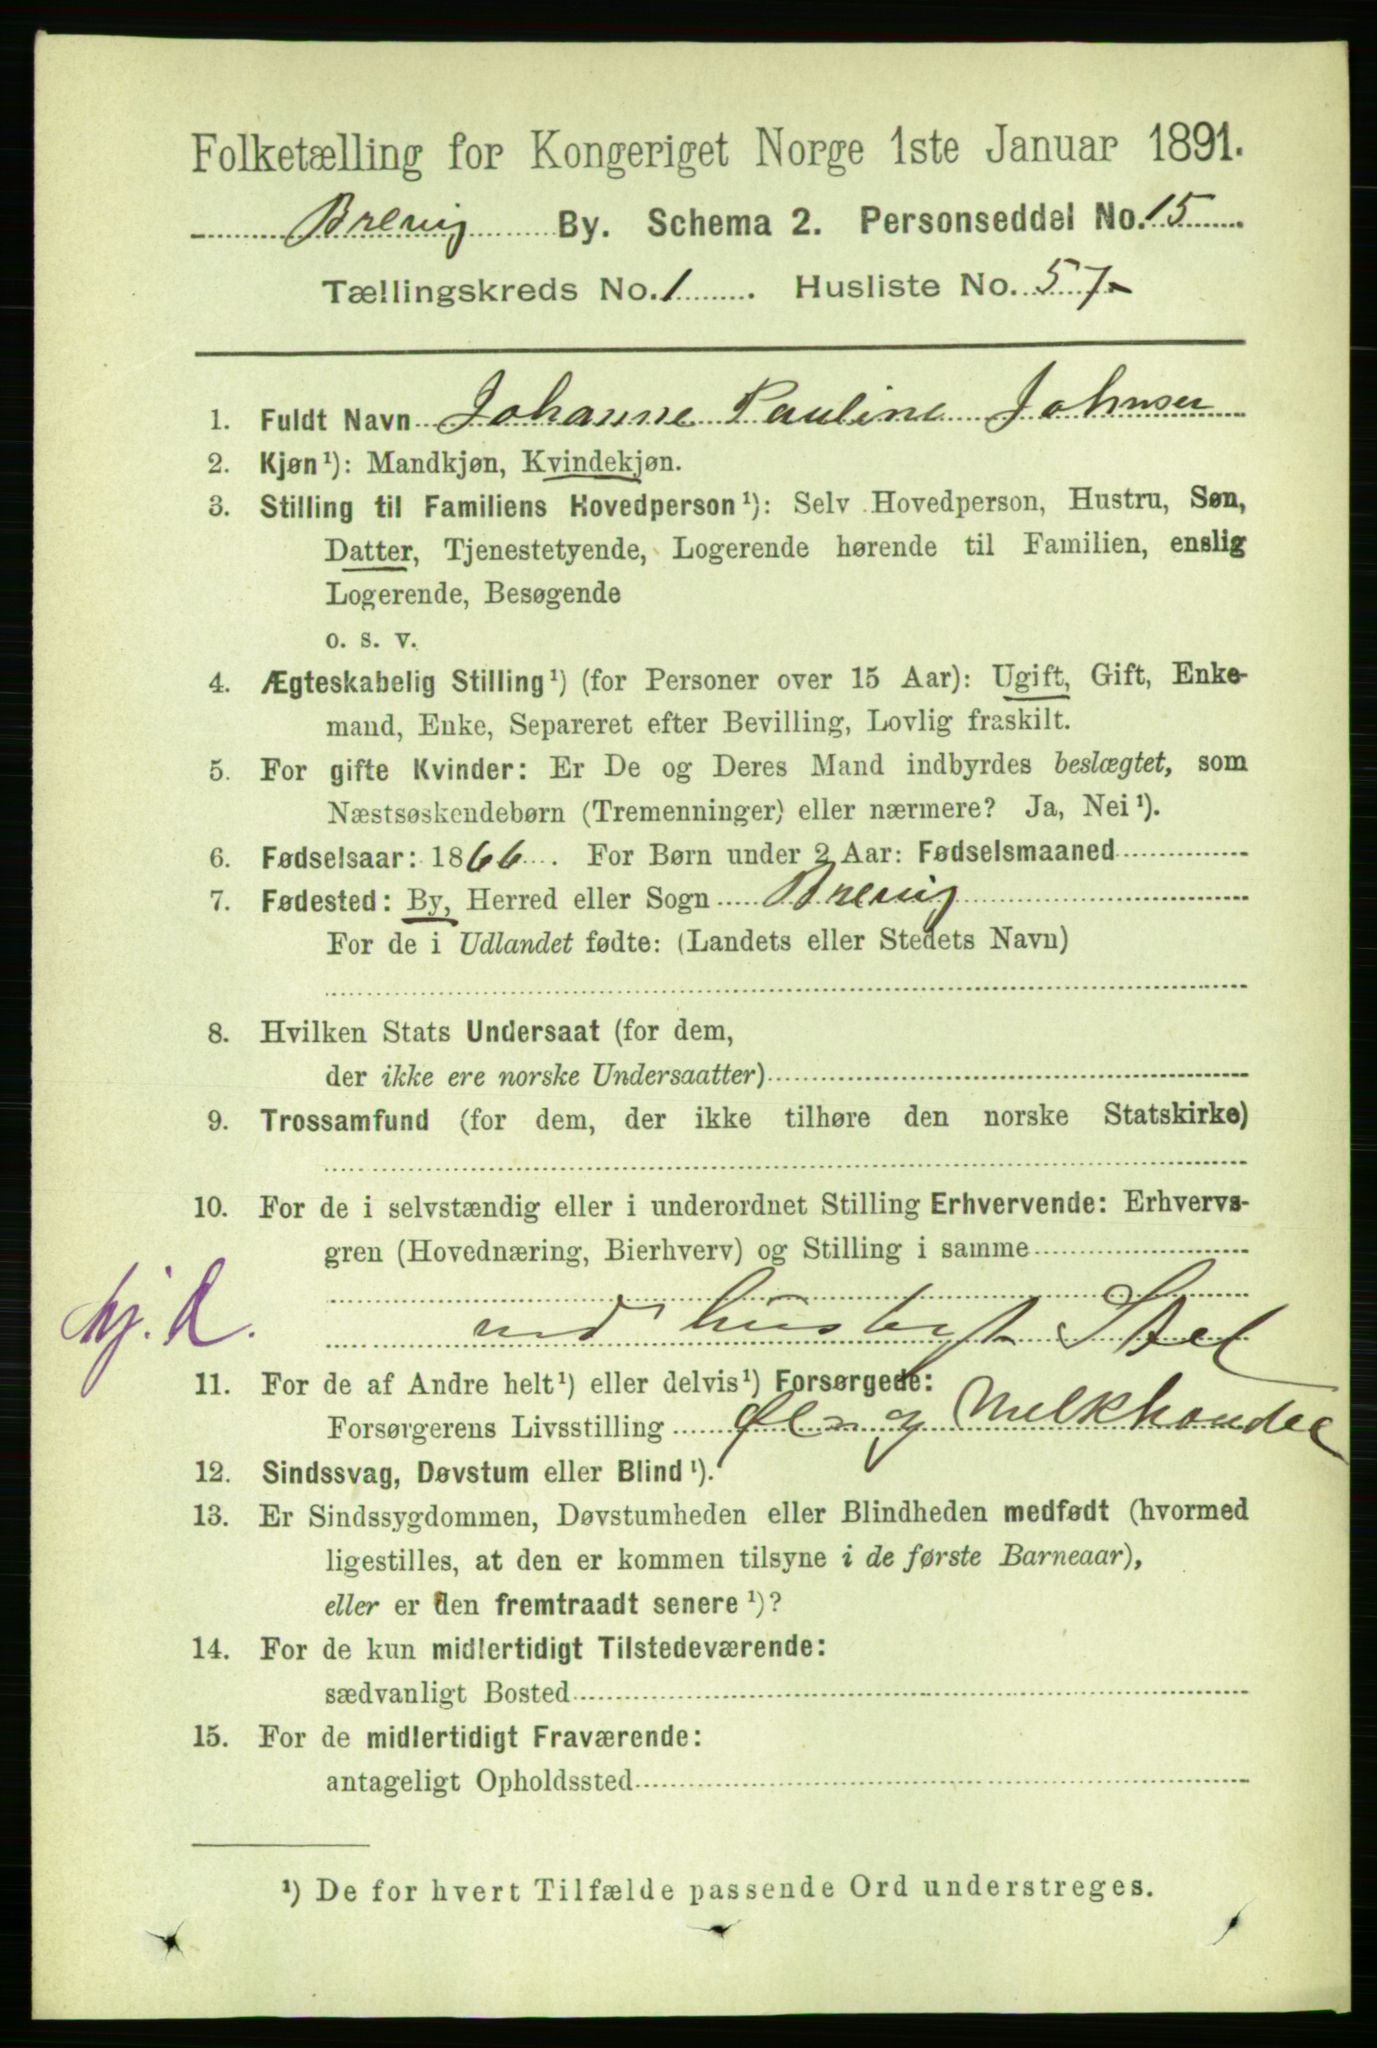 Folketælling for Kongeriget Norge 1ste Januar 1891.
Brevig By. Schema 2. Personseddel No. 15
Tællingskreds No. 1. Husliste No. 57
1. Fuldt Navn Johanne Pauline Johnsen
2. Kjøn¹): Mandkjøn, Kvindekjøn.
3. Stilling til Familiens Hovedperson¹): Selv Hovedperson, Hustru, Søn,
Datter, Tjenestetyende, Logerende hørende til Familien, enslig
Logerende, Besøgende
o. s. v.
4. Ægteskabelig Stilling¹) (for Personer over 15 Aar): Ugift, Gift, Enke-
mand, Enke, Separeret efter Bevilling, Lovlig fraskilt.
5. For gifte Kvinder: Er De og Deres Mand indbyrdes beslægtet, som
Næstsøskendebørn (Tremenninger) eller nærmere? Ja, Nei¹).
6. Fødselsaar: 1866. For Børn under 2 Aar: Fødselsmaaned
7. Fødested: By, Herred eller Sogn Brevig
For de i Udlandet fødte: (Landets eller Stedets Navn)
8. Hvilken Stats Undersaat (for dem,
der ikke ere norske Undersaatter)
9. Trossamfund (for dem, der ikke tilhøre den norske Statskirke)
10. For de i selvstændig eller i underordnet Stilling Erhvervende: Erhvervs-
gren (Hovednæring, Bierhverv) og Stilling i samme
hj. d. ved husligt Stel
11. For de af Andre helt¹) eller delvis¹) Forsørgede:
Forsørgerens Livsstilling Øl og Melkhandel
12. Sindssvag, Døvstum eller Blind¹).
13. Er Sindssygdommen, Døvstumheden eller Blindheden medfødt (hvormed
ligestilles, at den er kommen tilsyne i de første Barneaar),
eller er den fremtraadt senere¹)?
14. For de kun midlertidigt Tilstedeværende:
sædvanligt Bosted
15. For de midlertidigt Fraværende:
antageligt Opholdssted
¹) De for hvert Tilfælde passende Ord understreges.